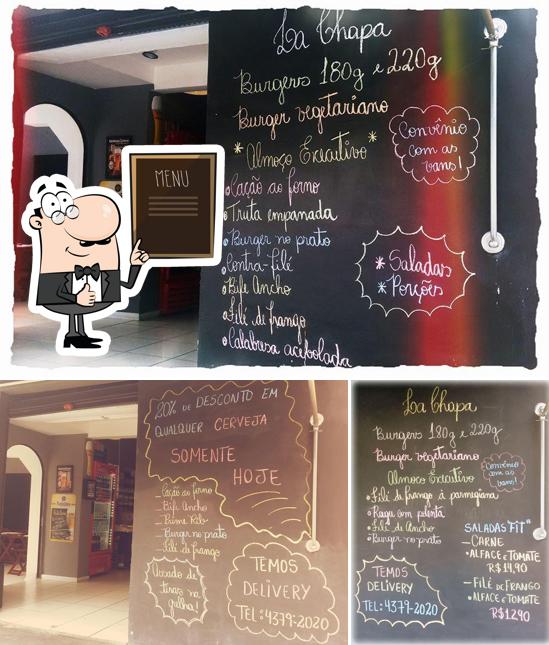 La Chapa
Burgers 180g e 220g
Burger vegetariano
* Almoço Executivo *
Convênio
com as
vans!
Cação ao forno
Truta empanada
Burger no prato
Contra-filé
Bife Ancho
Filé de frango
Calabresa acebolada
* Saladas
* Porções
MENU
20% DE DESCONTO EM
QUALQUER CERVEJA
SOMENTE
HOJE
Cação ao forno
Bife Ancho
Prime Rib
Burger no prato
Filé de frango
Assado de
tiras na
grelha!
TEMOS
DELIVERY
TEL: 4379-2020
La Chapa
Burgers 180g e 220g
Burger vegetariano
Almoço Executivo
Convênio
com as
vans!
Filé de frango à parmegiana
Ragu com polenta
Filé de Ancho
Burger no prato
SALADAS "FIT"
- CARNE
• ALFACE e TOMATE
R$ 14,90
- FILÉ DE FRANGO
• ALFACE e TOMATE
R$ 12,90
TEMOS
DELIVERY
TEL: 4379-2020